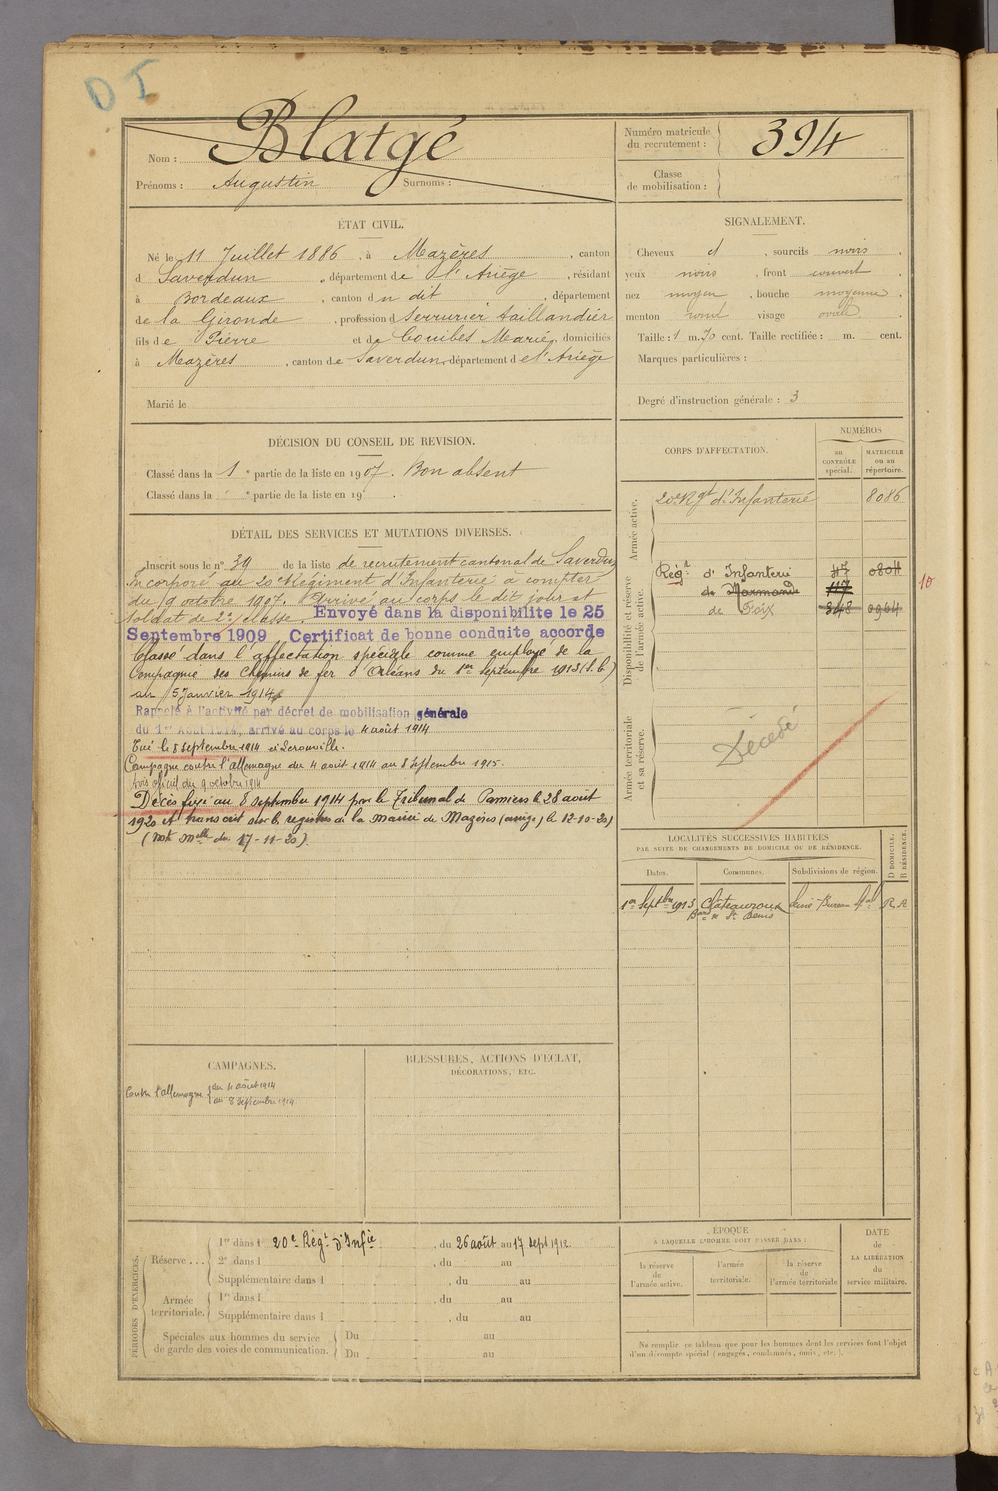 D I
Nom : Blatgé
Prénoms : Augustin Surnoms :
Numéro matricule
du recrutement : 394
Classe
de mobilisation :
ÉTAT CIVIL.
Né le 11 Juillet 1886, à Mazères, canton
d Saverdun, département de l'Ariège, résidant
à Bordeaux, canton du dit, département
de la Gironde, profession d Serrurier taillandier
fils de Pierre et de Combes Marie, domiciliés
à Mazères, canton de Saverdun, département de l'Ariège
Marié le
SIGNALEMENT.
Cheveux et, sourcils noirs,
yeux noirs, front couvert
nez moyen, bouche moyenne,
menton rond visage ovale
Taille : 1 m. 70 cent. Taille rectifiée : m. cent.
Marques particulières :
Degré d'instruction générale : 3
DÉCISION DU CONSEIL DE REVISION.
Classé dans la 1e partie de la liste en 1907. Bon absent
Classé dans la e partie de la liste en 19 .
DÉTAIL DES SERVICES ET MUTATIONS DIVERSES.
Inscrit sous le n° 39 de la liste de recrutement cantonal de Saverdun
Incorporé au 20e Régiment d'Infanterie à compter
du 9 octobre 1907. Arrivé au corps le dit jour et
soldat de 2e classe. Envoyé dans la disponibilite le 25
Septembre 1909 Certificat de bonne conduite accorde
Classé dans l'affectation spéciale comme employé de la
Compagnie des Chemins de fer d'Orléans du 1er septembre 1913
au 15 Janvier 1914
Rappelé à l'activité par décret de mobilisation générale
du 1er Août 1914, arrivé au corps le 4 août 1914
Tué le 8 septembre 1914 à
Campagne contre l'allemagne du 4 août 1914 au 8 septembre 1915.
Avis officiel du 9 octobre 1914
Décès fixé au 8 septembre 1914 par le Tribunal de Pamiers le 28 août
1920 et transcrit sur le registre de la mairie de Mazères (ariège) le 12-10-20
du 17-11-20).
CORPS D'AFFECTATION.
NUMÉROS
au
CONTRÔLE
spécial.
MATRICULE
ou au
répertoire.
Armée active.
20e Rgt d'Infanterie 8086
Disponibilité et réserve
de l'armée active.
Régt d'Infanterie
de Marmande 117
de Foix 348 0964
10
Armée territoriale
et sa réserve.
Décédé
LOCALITÉS SUCCESSIVES HABITÉES
PAR SUITE DE CHANGEMENTS DE DOMICILE OU DE RÉSIDENCE.
D DOMICILE.
R RÉSIDENCE.
Dates. Communes. Subdivisions de région.
1er Septbre 1913 Châteauroux
St Denis
CAMPAGNES.
Contre l'allemagne du 4 août 1914
au 8 Septembre 1914
BLESSURES, ACTIONS D'ÉCLAT,
DÉCORATIONS, ETC.
PÉRIODES D'EXERCICES.
Réserve... 1re dans l 20e Régt d'Infie, du 26 août au 17 sept 1912
2e dans l , du au
Supplémentaire dans l , du au
Armée
territoriale. 1re dans l , du au
Supplémentaire dans l , du au
Spéciales aux hommes du service
de garde des voies de communication. Du au
Du au
ÉPOQUE
À LAQUELLE L'HOMME DOIT PASSER DANS :
la réserve
de
l'armée active.
l'armée
territoriale.
la réserve
de
l'armée territoriale
DATE
de
LA LIBÉRATION
du
service militaire.
Ne remplir ce tableau que pour les hommes dont les services font l'objet
d'un décompte spécial (engagés, condamnés, omis, etc.).